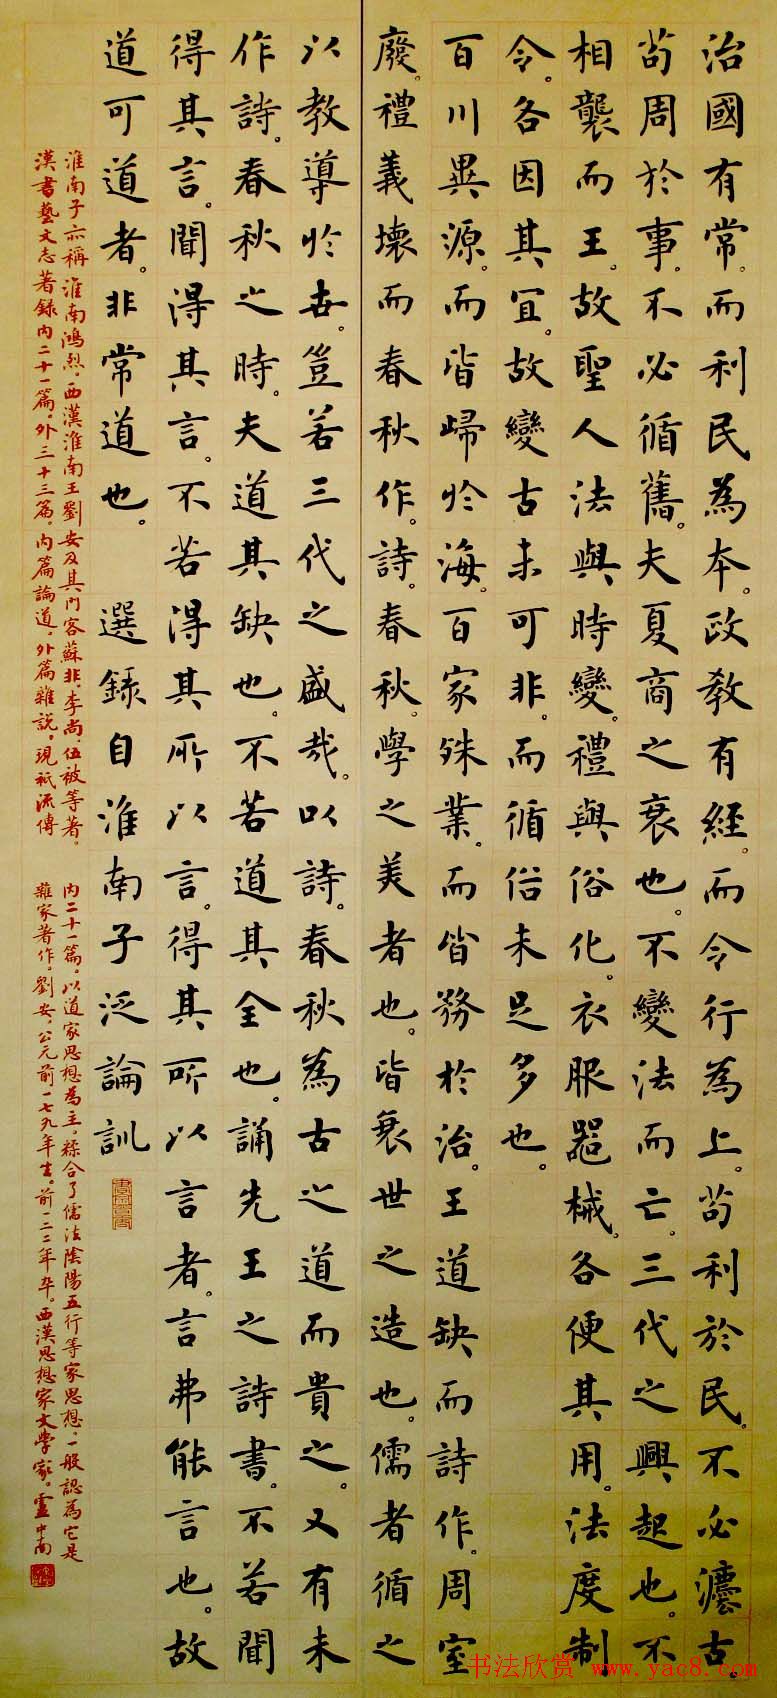 治國有常。而利民為本。政教有經。而令行為上。苟利於民。不必灋古。
苟周於事。不必循舊。夫夏商之衰也。不變法而亡。三代之興起也。不
相襲而王。故聖人法與時變。禮與俗化。衣服噐械。各便其用。法度制
令。各因其宜。故變古未可非。而循俗未足多也。
百川異源。而皆歸於海。百家殊業。而皆務於治。王道缺而詩作。周室
廢。禮義壞而春秋作。詩。春秋。學之美者也。皆衰世之造也。儒者循之
以教導於世。豈若三代之盛哉。以詩。春秋為古之道而貴之。又有未
作詩。春秋之時。夫道其缺也。不若道其全也。誦先王之詩書。不若聞
得其言。聞得其言。不若得其所以言。得其所以言者。言弗能言也。故
道可道者。非常道也。 選錄自淮南子泛論訓
淮南子亦稱淮南鴻烈。西漢淮南王劉安及其門客蘇非。李尚。伍被等著。
漢書藝文志著錄內二十一篇。外三十三篇。內篇論道。外篇雜說。現祇流傳
內二十一篇。以道家思想為主。糅合了儒法陰陽五行等家思想。一般認為它是
雜家著作。劉安。公元前一七九年生。前一二二年卒。西漢思想家文學家。盧中南
书法欣赏 www.yac8.com